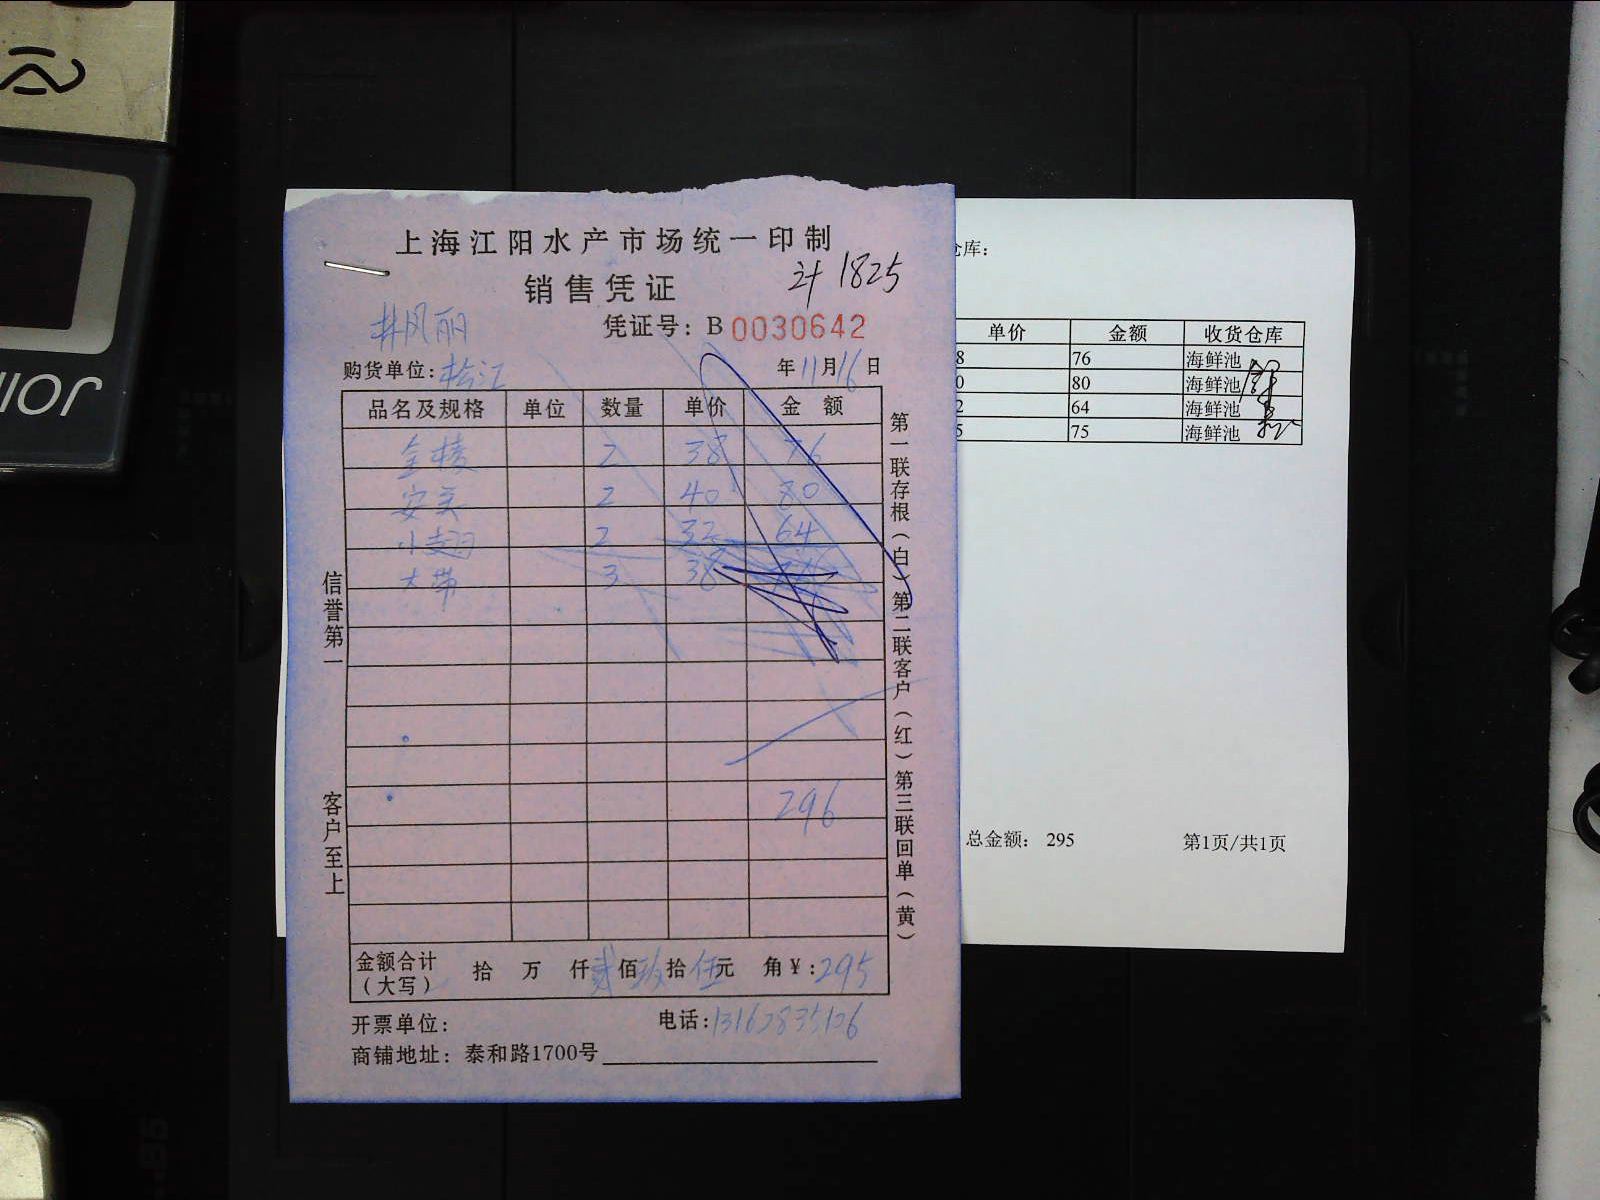 上海江阳水产市场统一印制
销售凭证
计 1825
凭证号：B 0030642
井风丽
购货单位：松江
年11月16日
品名及规格 单位 数量 单价 金额
全棱 2 38 76
安美 2 40 80
小翅 2 32 64
大带 3 38
296
金额合计（大写） 拾 万 仟贰佰玖拾伍元 角￥：295
开票单位： 电话：
商铺地址：泰和路1700号
信誉第一
客户至上
第一联存根（白）第二联客户（红）第三联回单（黄）
仓库：
单价 金额 收货仓库
8 76 海鲜池
0 80 海鲜池
2 64 海鲜池
5 75 海鲜池
总金额： 295 第1页/共1页